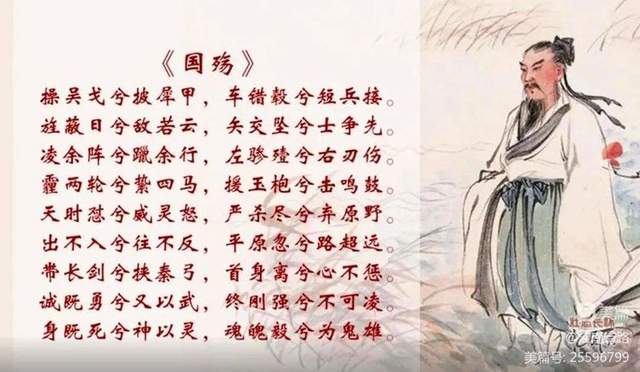 《国殇》
操吴戈兮披犀甲，车错毂兮短兵接。
旌蔽日兮敌若云，矢交坠兮士争先。
凌余阵兮躐余行，左骖殪兮右刃伤。
霾两轮兮絷四马，援玉枹兮击鸣鼓。
天时怼兮威灵怒，严杀尽兮弃原野。
出不入兮往不反，平原忽兮路超远。
带长剑兮挟秦弓，首身离兮心不惩。
诚既勇兮又以武，终刚强兮不可凌。
身既死兮神以灵，魂魄毅兮为鬼雄。
美篇
美篇号: 25596799